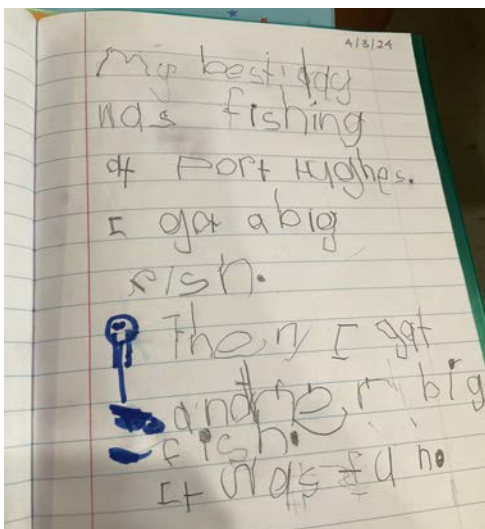 4/3/24
My best day
was fishing
at Port Hughes.
I got a big
fish.
Then I got
another big
fish.
It was fun.